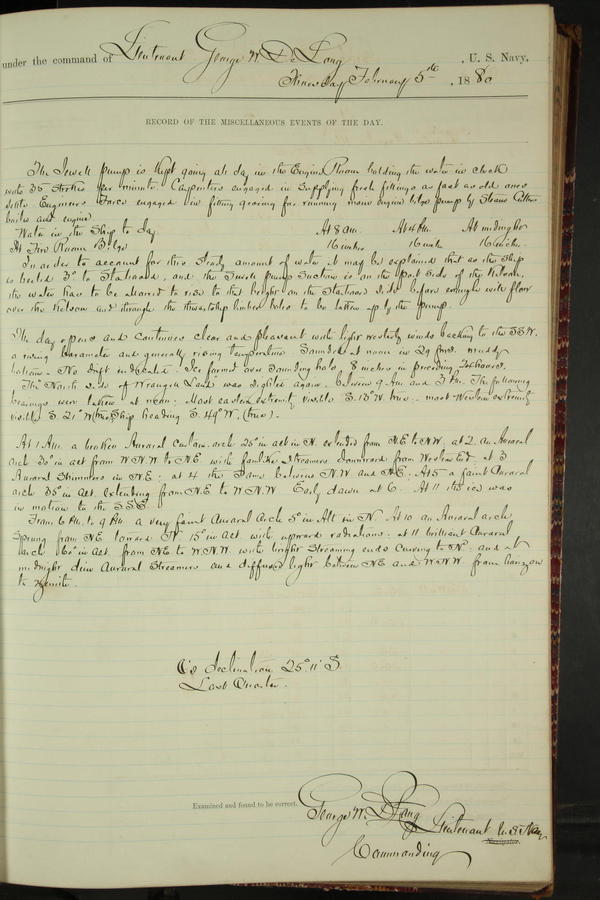 under the command of Lieutenant George W. De Long, U. S. Navy,
Thursday February 5th, 1880
RECORD OF THE MISCELLANEOUS EVENTS OF THE DAY.
The Sewell pump is kept going all day in the Engine Room holding the water in check
with 36 strokes per minute. Carpenters engaged in supplying fresh fittings as fast as old ones
Engineers force engaged in fitting gearing for running main engine bilge pump by Steam Cutter
boiler and engine.
Water in the Ship to day At 8 am. At 4 PM. At midnight
At Fire Room Bilge 16 inches 16 inches 16 inches.
In order to account for this steady amount of water it may be explained that as the ship
is heeled 3° to Starboard, and the Sewell pump suction is on the port side of the Kelson,
the water has to be allowed to rise to that height on the Starboard side before enough will flow
over the Kelson and through the thwartship limber holes to be taken up by the pump.
The day opens and continues clear and pleasant with light westerly winds backing to the SSW.
a rising barometer and generally rising temperature. Sounded at noon in 29 fms. muddy
bottom. No drift indicated. Ice formed over sounding hole 8 inches in preceding 24 hours.
The North side of Wrangell Land was sighted again between 9 AM. and 3 PM. The following
bearings were taken at noon: Most eastern extremity visible S. 13° W. true. most Western extremity
visible S. 21° W (true) Ship heading S. 49° W. (true).
At 1 AM. a broken Auroral curtain arch 25° in alt in N. extended from NE to NW; at 2 an Auroral
arch 30° in alt from W.N.W to NE with faint streamers downward from Western End. at 3
Auroral Shimmers in NE; at 4 the Same between N.W. and NE. At 5 a faint Auroral
arch 35° in Alt. extending from NE to W N W. Early dawn at 6. At 11 the ice was
in motion to the SSE.
From 6 PM. to 9 PM a very faint Auroral Arch 5° in Alt in N. At 10 an Auroral arch
Spring from NE toward N 15° in Alt with upward radiations; at 11 brilliant Auroral
arch 60° in Alt. from NE to W.N.W. with bright Streaming ends curving to N°; and at
midnight dim Auroral Streamers and diffused light between NE and WNW from horizon
to zenith.
☾'s declination 25° 11' S.
Last Quarter.
Examined and found to be correct.
George W. De Long Lieutenant U.S. Navy
Navigator.
Commanding